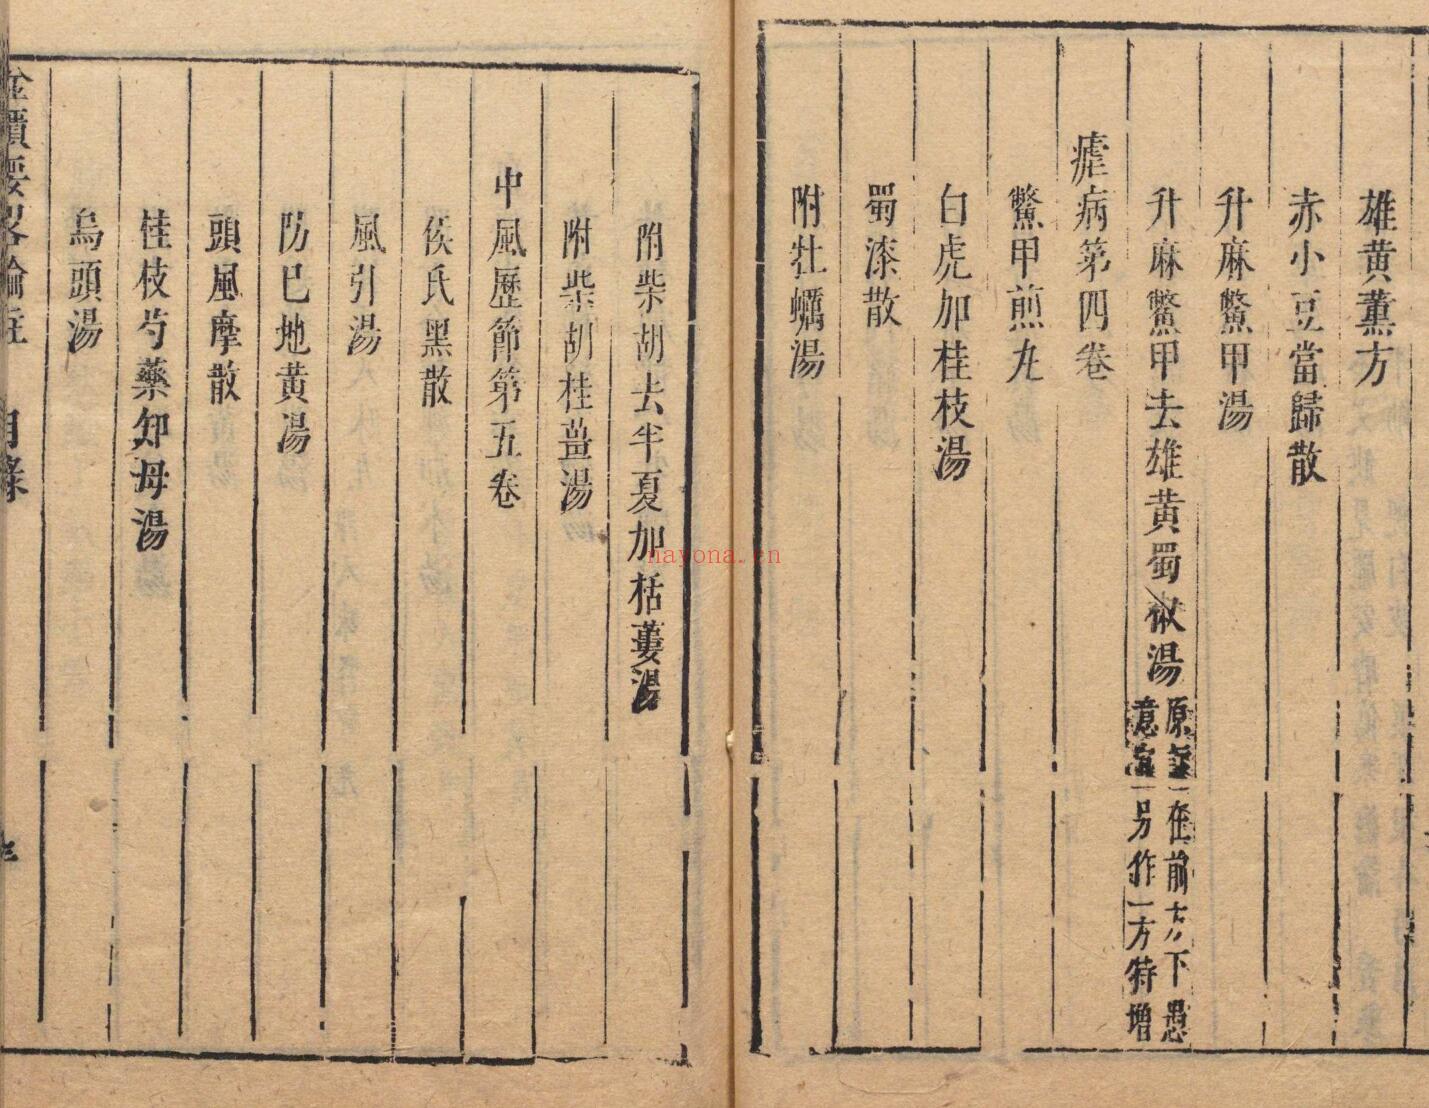 雄黃薰方
赤小豆當歸散
升麻鱉甲湯
升麻鱉甲去雄黃蜀椒湯
原
在前方下愚
意
另作一方特增
瘧病第四卷
鱉甲煎丸
白虎加桂枝湯
蜀漆散
附牡蠣湯
附柴胡去半夏加栝蔞湯
附柴胡桂薑湯
中風歷節第五卷
侯氏黑散
風引湯
防已地黃湯
頭風摩散
桂枝芍藥知母湯
烏頭湯
金匱要畧論註 目錄
nayona.cn